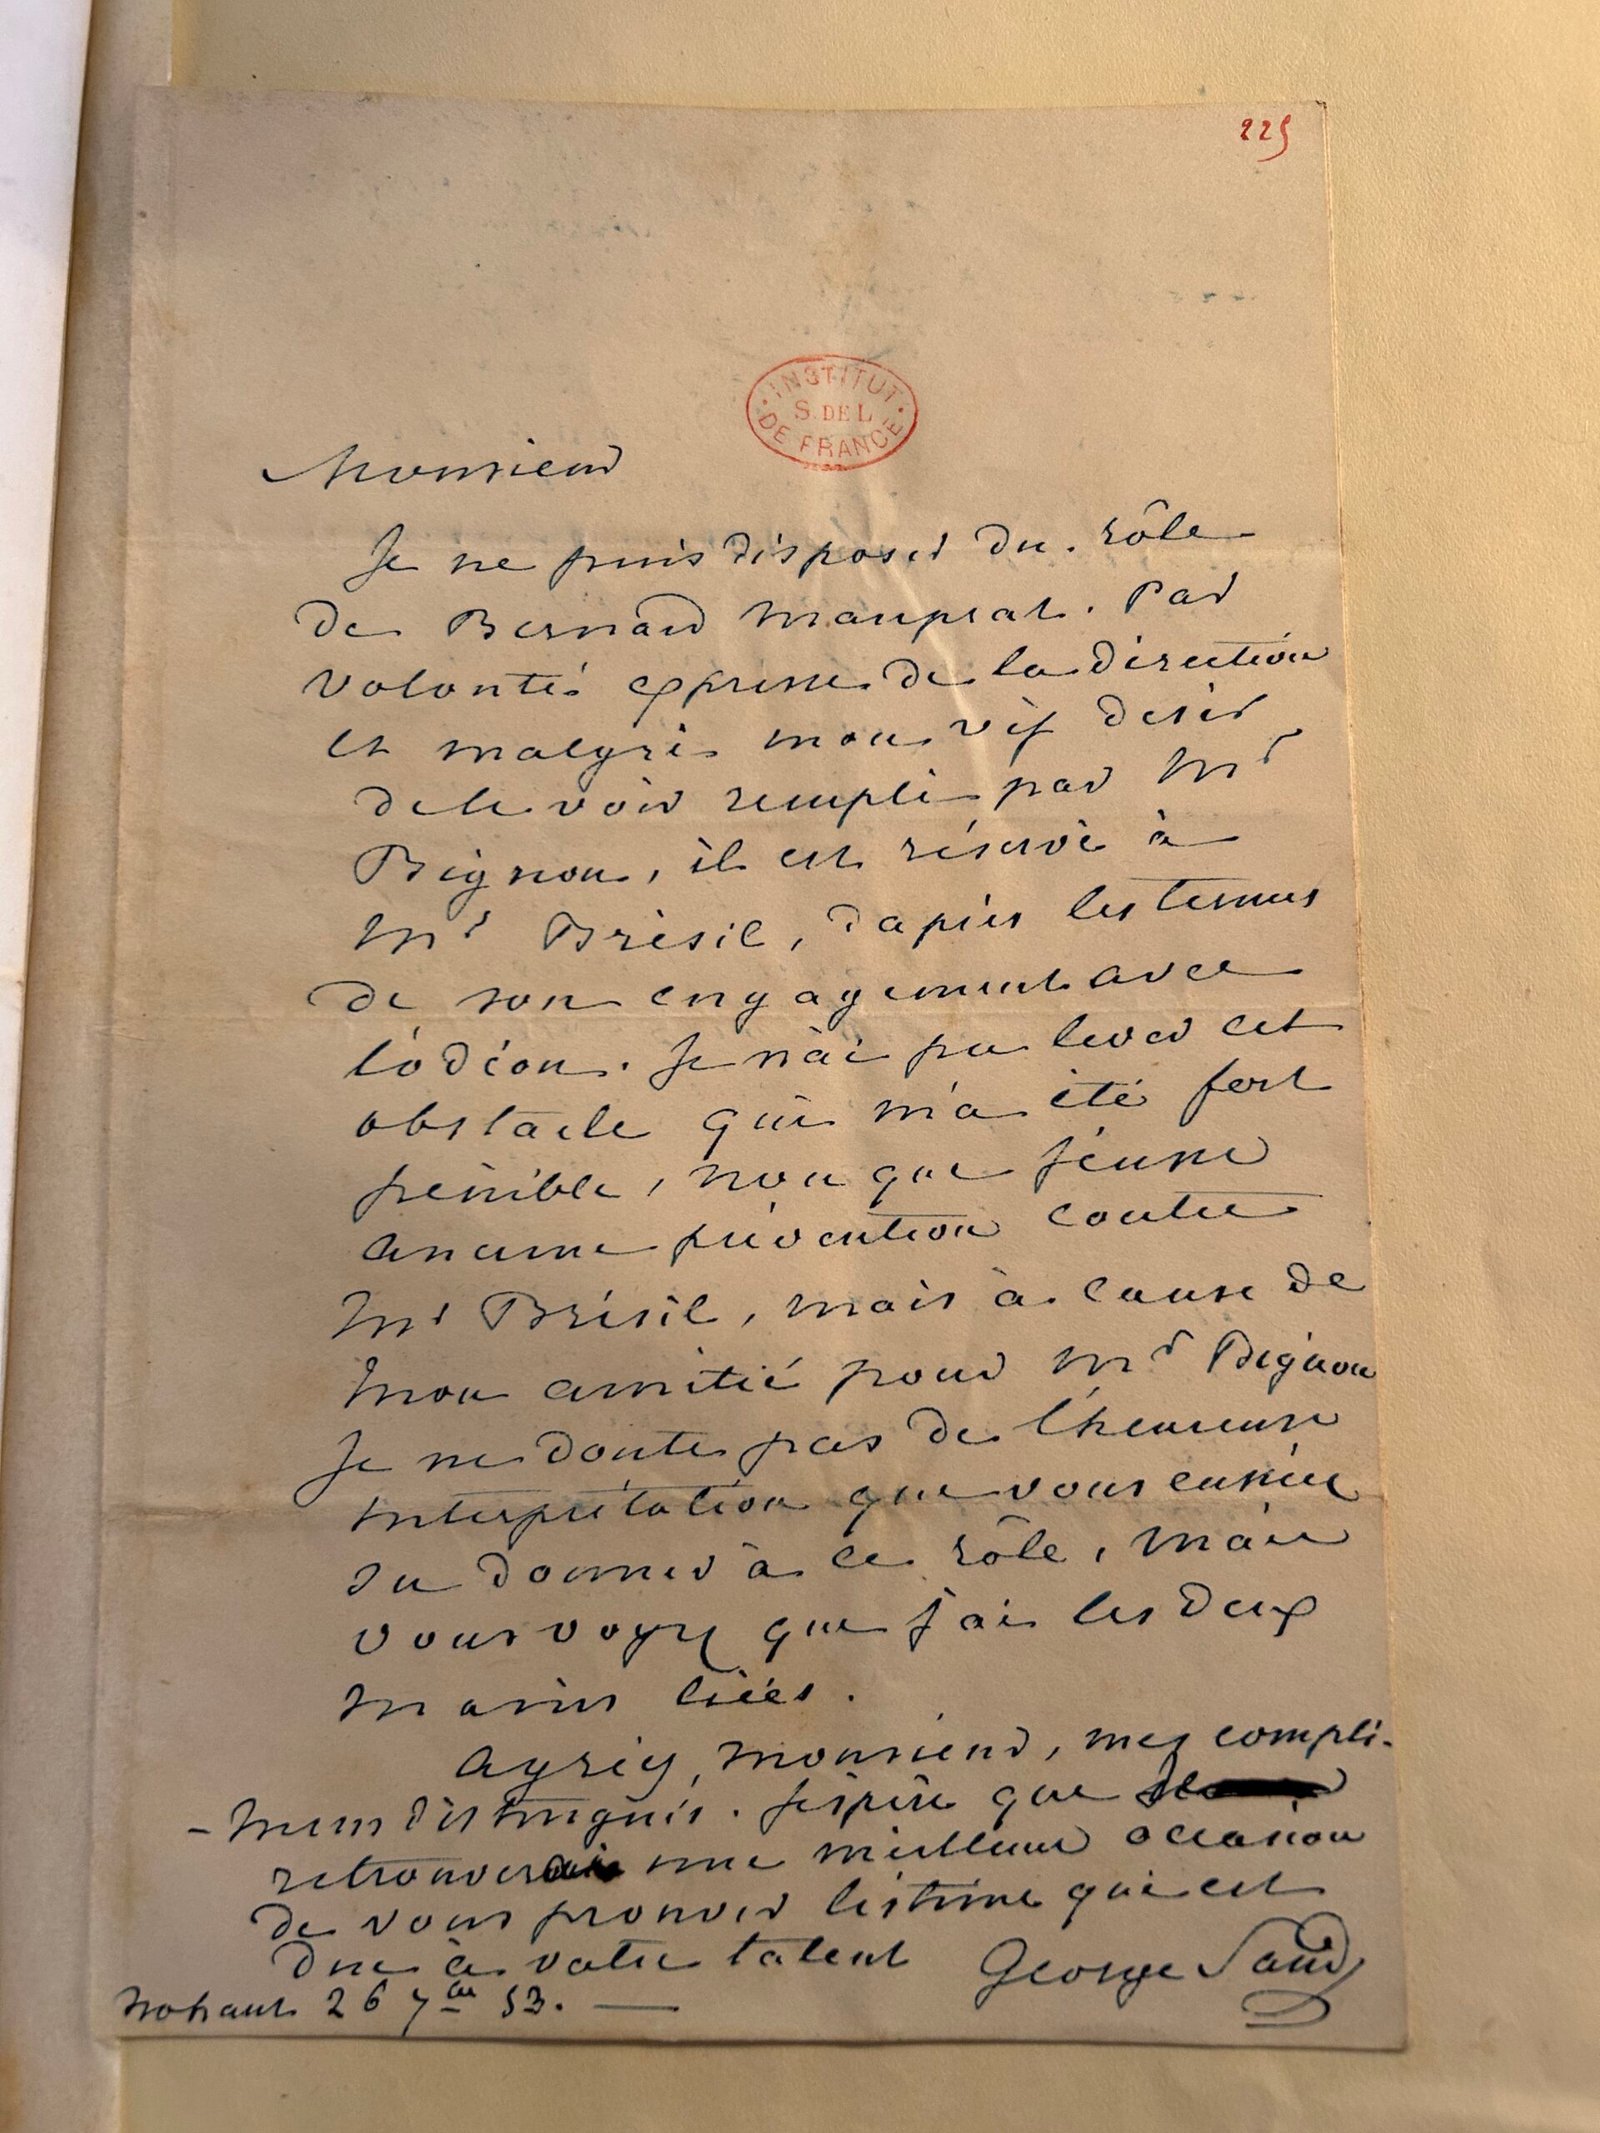 225
INSTITUT
S. DE L
DE FRANCE
Monsieur
Je ne puis disposer du rôle
de Bernard Mauprat. Par
volonté expresse de la direction
et malgré mon vif désir
de le voir rempli par Mr
Bignon, il est réservé à
Mr Brésil, daprès les termes
de son engagement avec
l'odéon. Je n'ai pu lever cet
obstacle qui m'a été fort
pénible, non que j'eusse
aucune prévention contre
Mr Brésil, mais à cause de
mon amitié pour Mr Bignon
Je ne doute pas de l'heureuse
interprétation que vous eussiez
su donner à ce rôle, mais
vous voyez que j'ai les deux
mains liées.
Agréez, monsieur, mes compli-
-mens distingués. J'espère que
retrouverai une meilleure occasion
de vous prouver l'estime qui est
due à votre talent George Sand
Nohant 26 7bre 53.